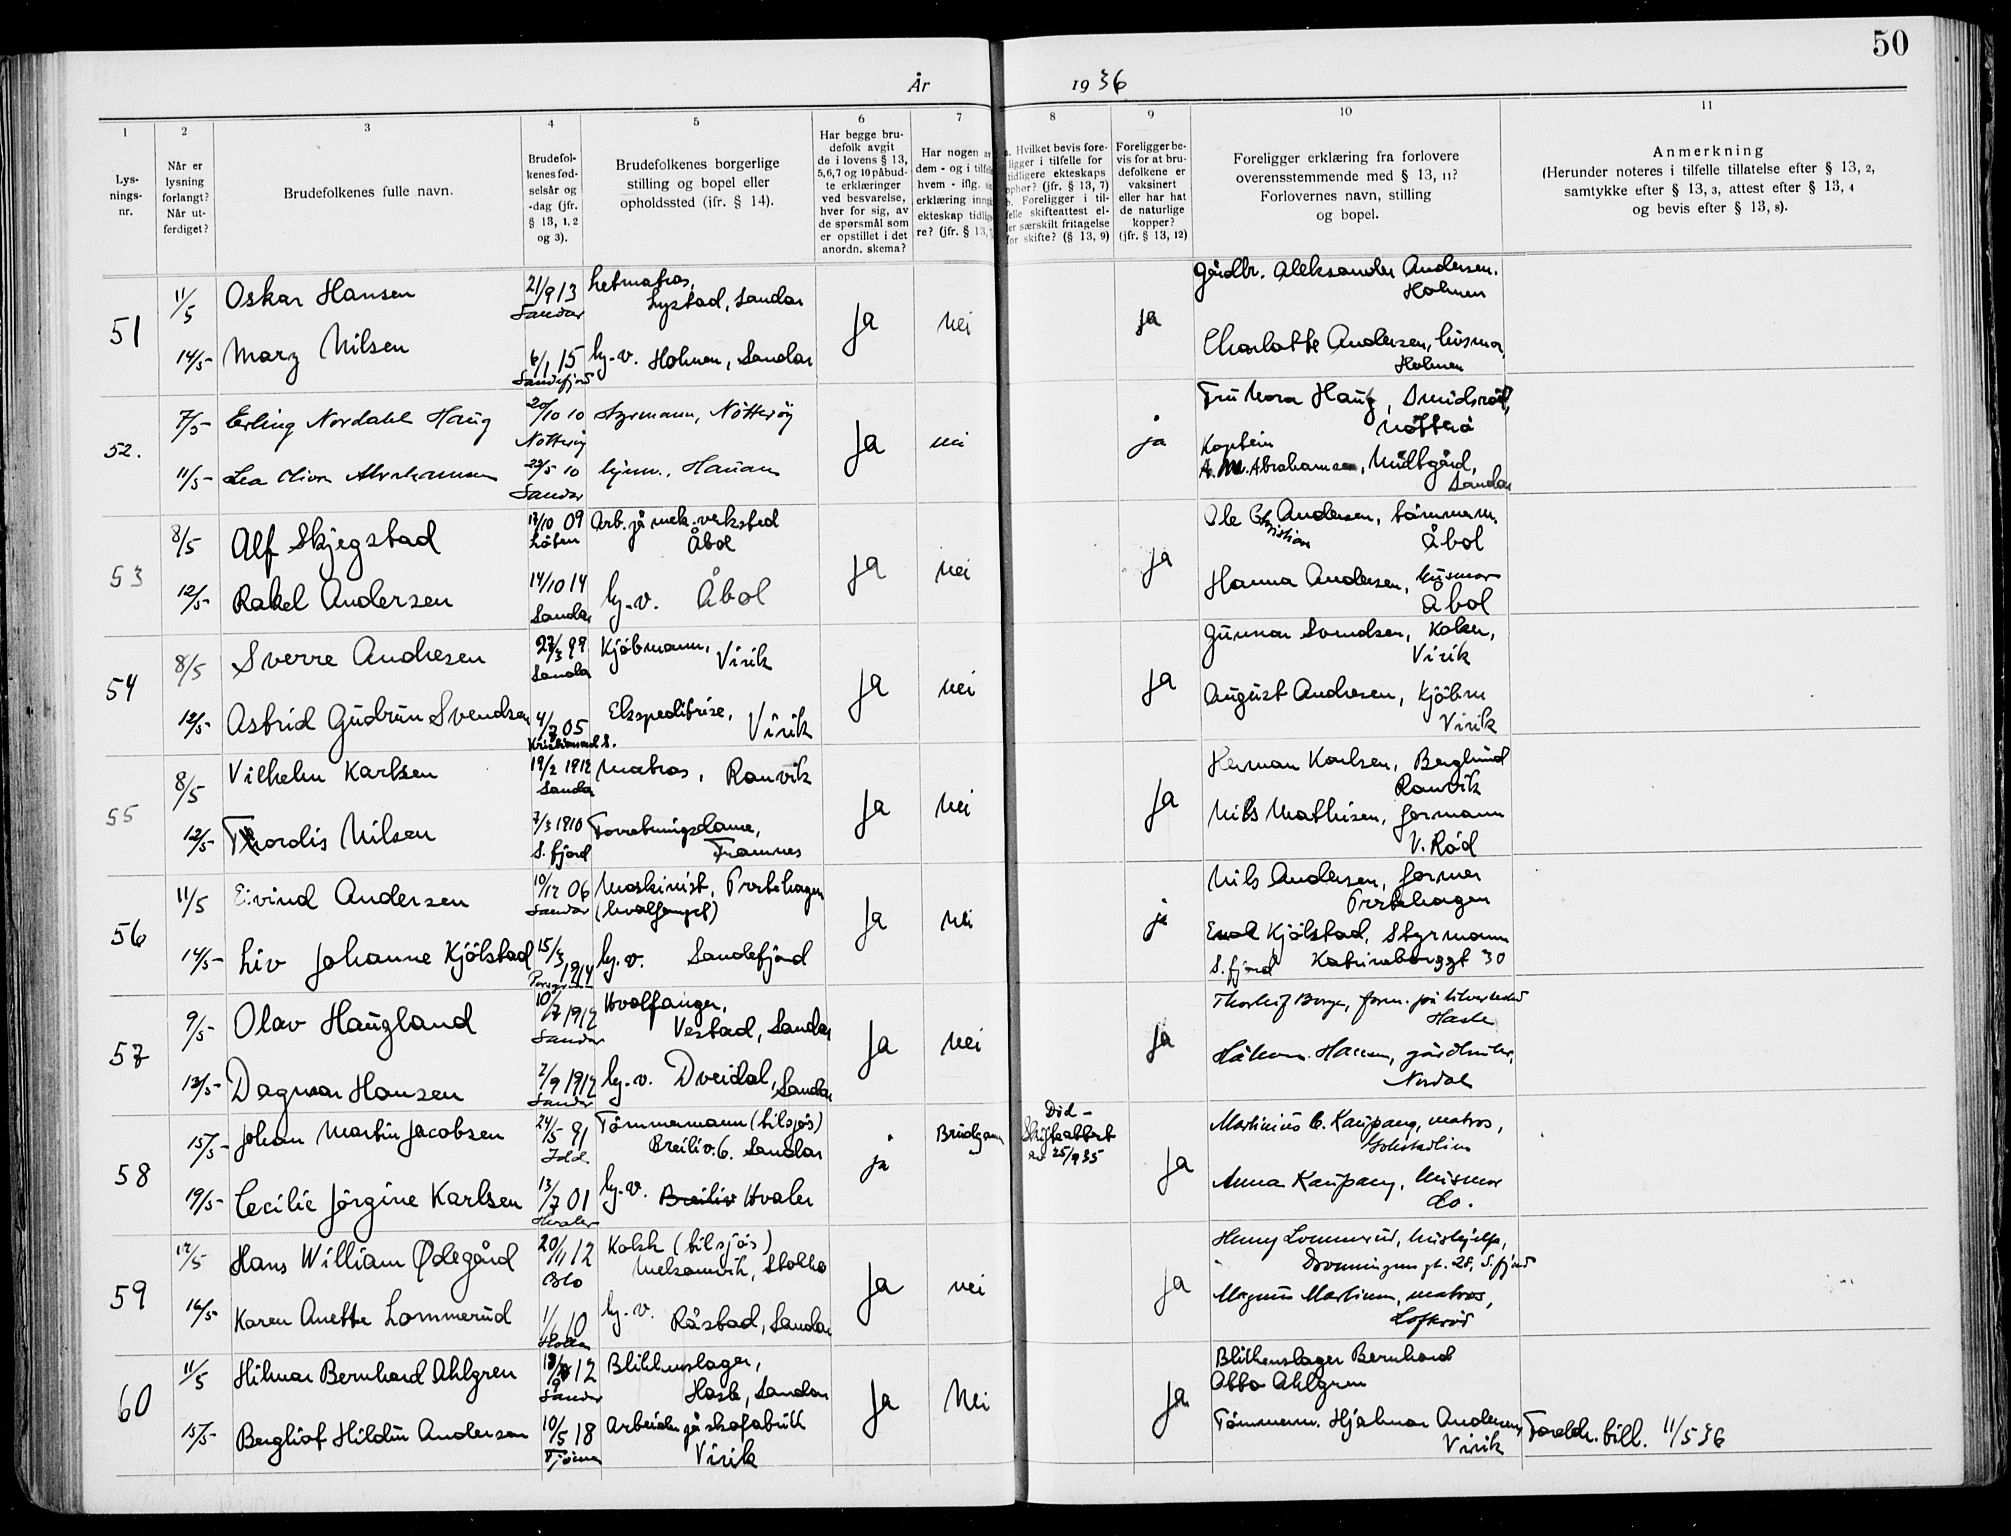 50
År 1936
1 2 3 4 5 6 7 8 9 10 11
Lys-
nings-
nr.
Når er
lysning
forlangt?
Når ut-
ferdiget?
Brudefolkenes fulle navn.
Brudefol-
kenes fød-
selsår og
-dag (jfr.
§ 13, 1, 2
og 3).
Brudefolkenes borgerlige
stilling og bopel eller
opholdssted (jfr. § 14).
Har begge bru-
defolk avgit
de i lovens § 13,
5,6,7 og 10 påbud-
te erklæringer
ved besvarelse,
hver for sig, av
de spørsmål som
er opstillet i det
anordn. skema?
Har nogen av
dem - og i tilfelle
hvem - iflg.
erklæring inngått
ekteskap tidlige-
re? (jfr. § 13,
a. Hvilket bevis fore-
ligger i tilfelle for
tidligere ekteskaps
ophør? (jfr. § 13, 7)
b. Foreligger i til-
felle skifteattest el-
ler særskilt fritagelse
for skifte? (§ 13, 9)
Foreligger be-
vis for at bru-
defolkene er
vaksinert
eller har hat
de naturlige
kopper?
(jfr. § 13, 12)
Foreligger erklæring fra forlovere
overensstemmende med § 13, 11?
Forlovernes navn, stilling
og bopel.
Anmerkning
(Herunder noteres i tilfelle tillatelse efter § 13, 2,
samtykke efter § 13, 3, attest efter § 13, 4
og bevis efter § 13, 8).
51
11/5 Oskar Hansen 21/9 13 Sandar Letmatros,
Lystad, Sandar
Ja Nei Ja
Gårdbr. Aleksander Andersen.
Holmen
14/5- Mary Nilsen 6/1 15 Sandefjord hj.-v. Holmen, Sandar
Charlotte Andersen, husmor,
Holmen
52.
7/5- Erling Nordahl Haug 20/10 10 Nøtterøy Styrmann, Nøtterøy
Ja nei ja
Fru Nora Haug, Smidsrød,
Nøtterø
11/5- Lea Oliva Abrahamsen 29/5 10 Sandar hjem., Hauan
Kaptein
A. M. Abrahamsen, Midtgård,
Sandar
53
8/5 Alf Skjegstad 17/10 09 Løten Arb. på mek. verksted
Åbol
Ja nei Ja
Ole Christian Andersen, tømmerm.
Åbol
12/5- Rakel Andersen 14/10 14 Sandar hj.-v. Åbol
Hanna Andersen, husmor
Åbol
54
8/5 Sverre Andresen 27/3 99 Sandar Kjøbmann,
Virik
Ja nei Ja
Gunnar Svendsen, Koker,
Virik
12/5- Astrid Gudrun Svendsen 4/7 05 Kristiansund S. Ekspeditrise,
Virik
August Andresen, Kjøbm
Virik
55
8/5 Vilhelm Karlsen 19/2 1912 Sandar Matros, Ranvik
Ja Nei Ja
Herman Karlsen, Berglund
Ranvik
12/5- Thordis Nilsen 7/3 1910 S.fjord Forretningsdame,
Framnes
Nils Mathisen, formann
V. Rød
56
11/5 Eivind Andersen 10/12 06 Sandar Maskinist, Prestehagen
(hvalfangst)
Ja nei ja
Nils Andersen, former
Prestehagen
14/5- Liv Johanne Kjølstad 15/3 1914 hj.v. Sandefjord
Kjølstad, Styrmann
S.fjord Katrineborggt 30
57
9/5- Olav Haugland 10/7 1912 Sandar Hvalfanger,
Vestad, Sandar
Ja Nei Ja
Thorleif Berge,
Hasle
13/5- Dagmar Hansen 2/9 1912 Sandar hj.-v. Dveidal, Sandar
Håkon Hansen, gårdbruker,
Nordal
58
15/5- Johan Martin Jacobsen 24/5 91 Idd Tømmermann (tilsjøs)
Breiliv. 6. Sandar
ja Brudgom Død -
Skifteattest
av 25/9 35
Ja
Martinius C. Kaupang, matros,
Gokstadlien
19/5- Cecilie Jørgine Karlsen 13/7 01 Hvaler hj.-v. Breiliv Hvaler
Anna Kaupang, husmor
do.
59
12/5 Hans William Ødegård 20/11 12 Oslo Kokk (tilsjøs)
Ja nei Ja
Henny Lommerud, hushjelp,
Dronningens gt. 28, S.fjord
16/5- Karen Anette Lommerud hj.-v. Råstad, Sandar
Magnus Martinsen, matros,
60
11/5 Hilmar Bernhard Ahlgren 12 Sandar Blikkenslager,
Hasle, Sandar
Ja Nei Ja
Blikkenslager Bernhard
Abbo Ahlgren
15/5- Bergliot Hildur Andersen 10/5 18 Tjøme Arbeider på skofabrikk
Virik
Tømmerm. Hjalmar Andersen,
Virik
Foreldr. bill. 11/5 36